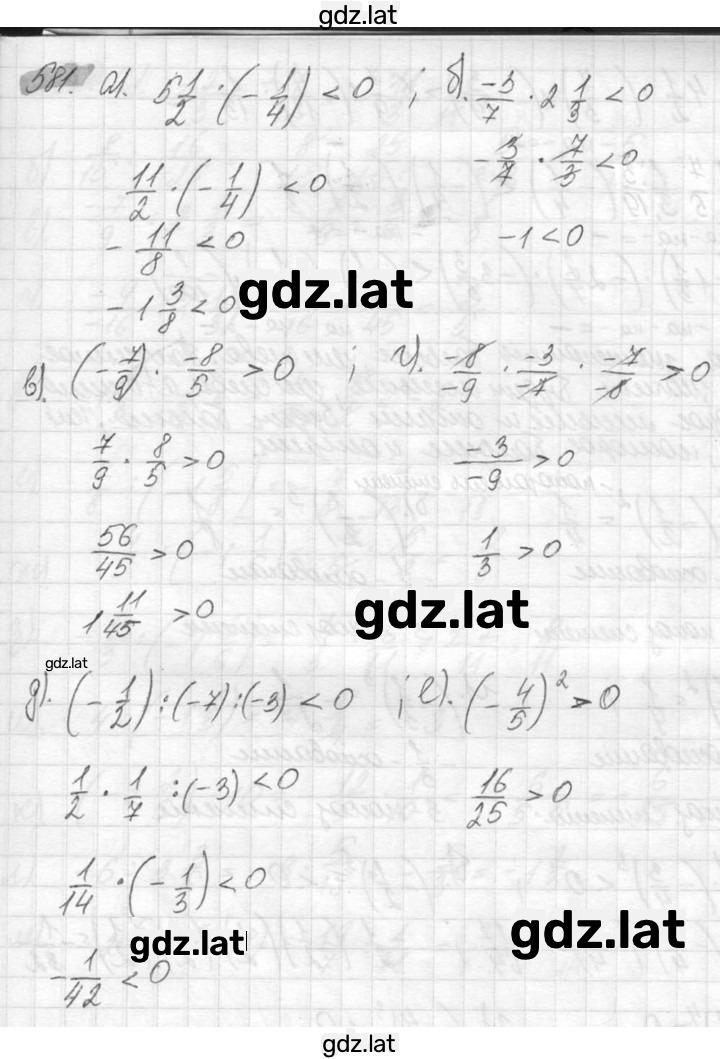 gdz.lat
581. а). 5 1/2 · (- 1/4) < 0 ; б). -3/7 · 2 1/3 < 0
11/2 · (- 1/4) < 0
- 3/7 · 7/3 < 0
- 11/8 < 0
-1 < 0
- 1 3/8 < 0
gdz.lat
в). (- 7/9) · -8/5 > 0 ; г). -8/-9 · -3/-7 · -7/-8 > 0
7/9 · 8/5 > 0
-3/-9 > 0
56/45 > 0
1/3 > 0
1 11/45 > 0
gdz.lat
gdz.lat
д). (- 1/2) : (-7) : (-3) < 0 ; е). (- 4/5)² > 0
1/2 · 1/7 : (-3) < 0
16/25 > 0
1/14 · (- 1/3) < 0
gdz.lat
gdz.lat
- 1/42 < 0
gdz.lat